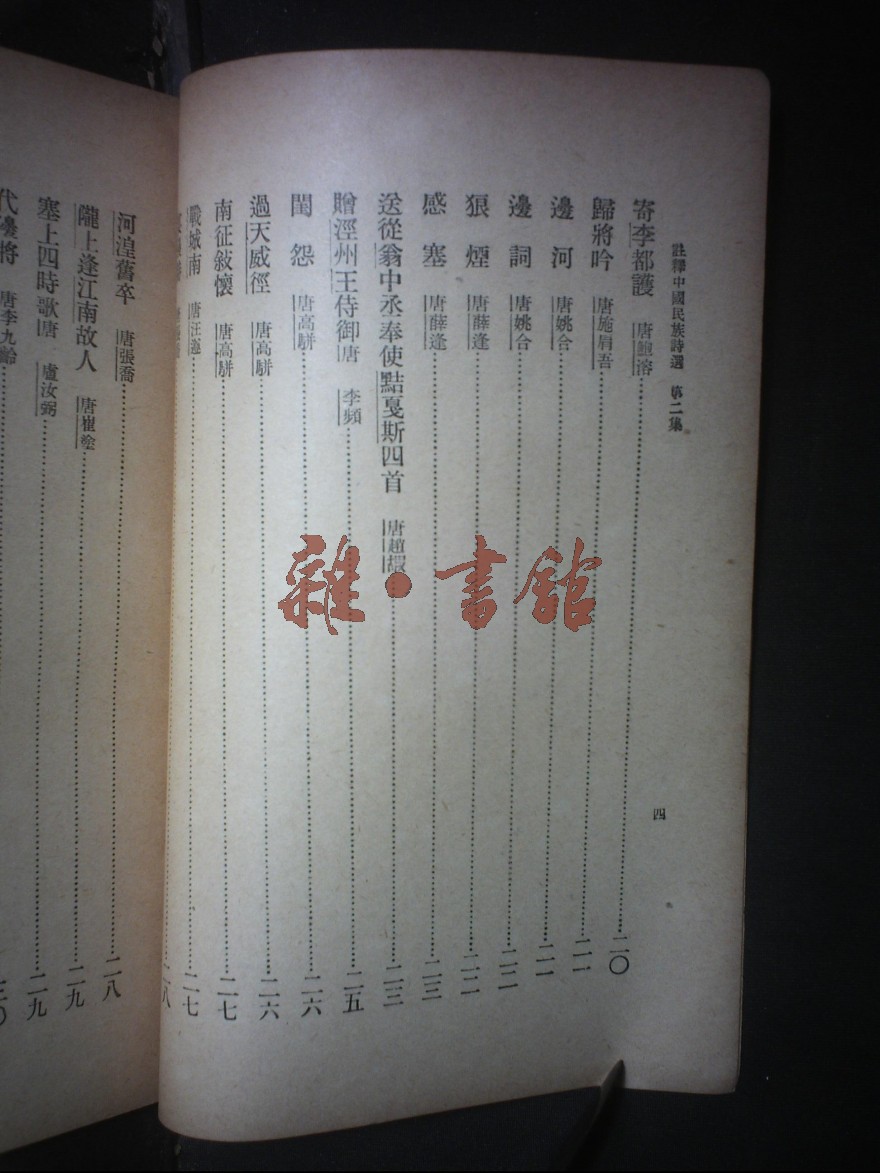 註釋中國民族詩選 第二集
四
寄李都護 唐鮑溶 二〇
歸將吟 唐施肩吾 二一
邊河 唐姚合 二一
邊詞 唐姚合 二二
狼煙 唐薛逢 二二
感塞 唐薛逢 二三
送從翁中丞奉使黠戛斯四首 唐趙嘏 二三
贈涇州王侍御 唐李頻 二五
閨怨 唐高駢 二六
過天威徑 唐高駢 二六
南征敍懷 唐高駢 二七
戰城南 唐汪遵 二七
二八
河湟舊卒 唐張喬 二八
隴上逢江南故人 唐崔塗 二九
塞上四時歌 唐盧汝弼 二九
代邊將 唐李九齡 三〇
雜·書館